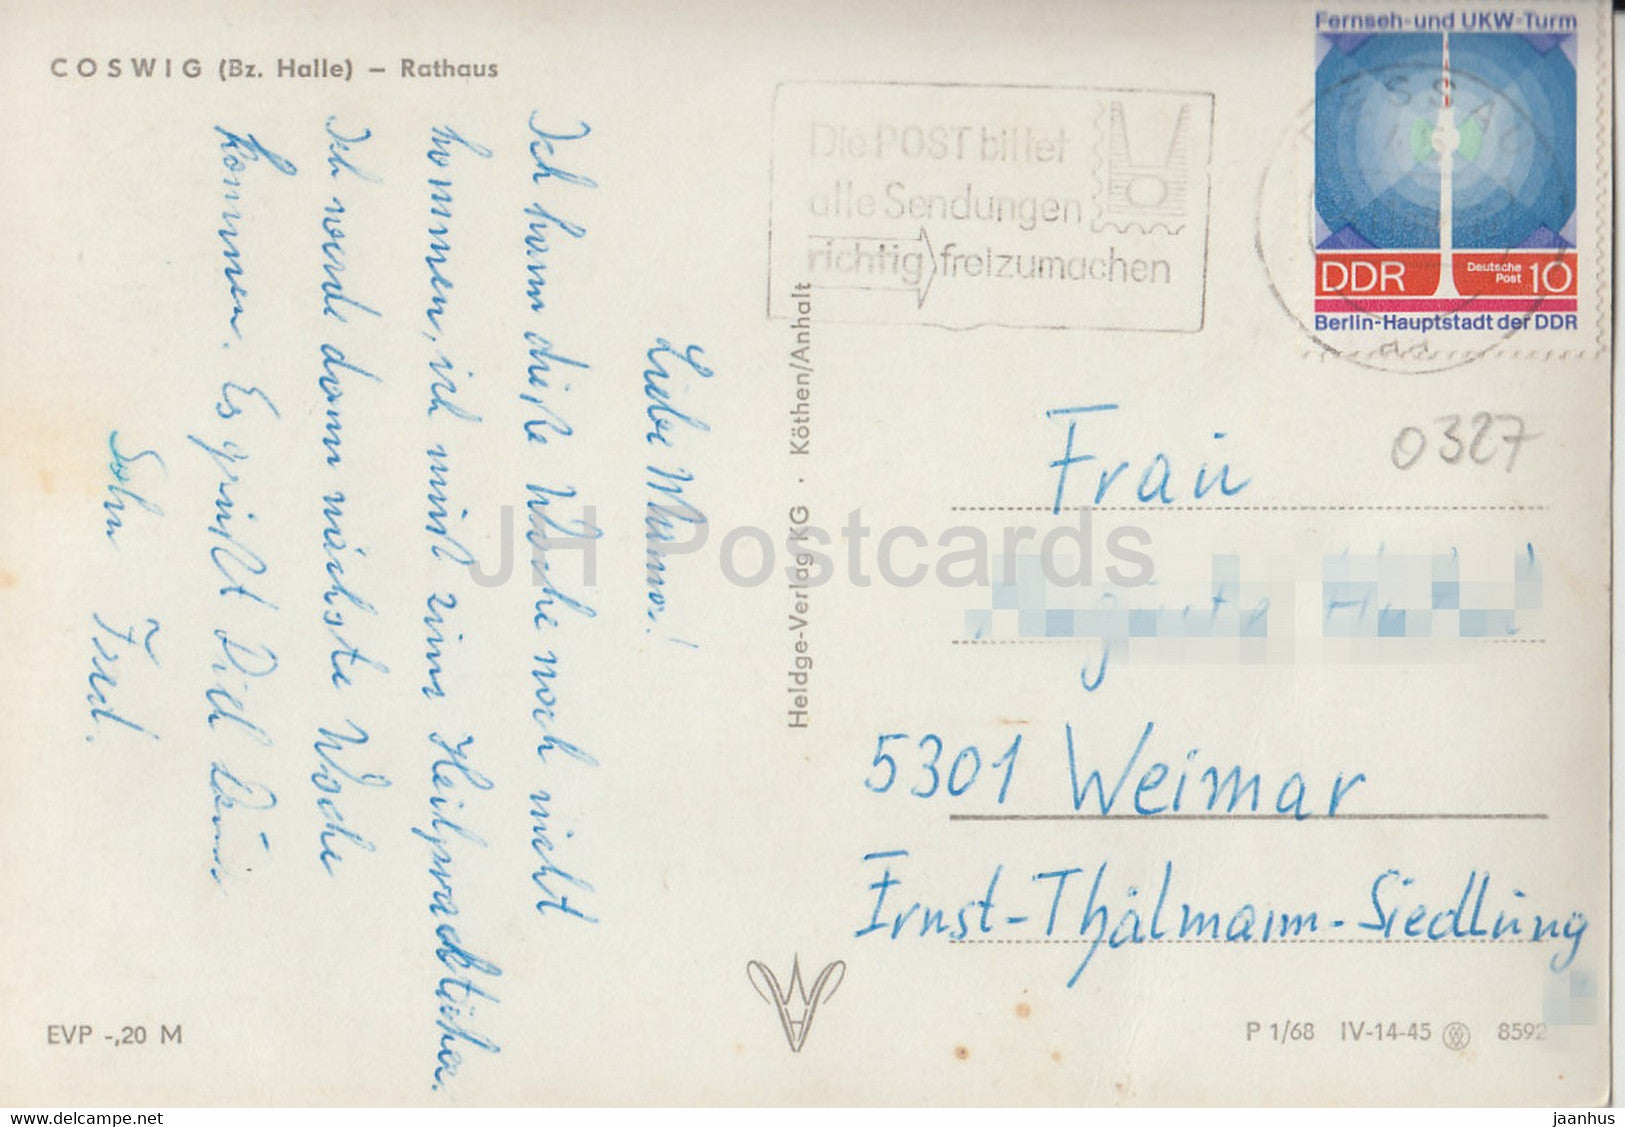 COSWIG (Bz. Halle) – Rathaus
Liebe Mama!
Ich kann diese Woche noch nicht
kommen, ich muß zum Heilpraktiker.
Ich werde dann nächste Woche
kommen. Es grüßt Dich Dein
Sohn Fred.
EVP -,20 M
Heldge-Verlag KG · Köthen/Anhalt
Die POST bittet
alle Sendungen
richtig freizumachen
Fernseh- und UKW-Turm
DDR Deutsche Post 10
Berlin-Hauptstadt der DDR
DESSAU
0327
Frau
5301 Weimar
Ernst-Thälmann-Siedlung
P 1/68 IV-14-45 8592
JH Postcards
www.delcampe.net
jaanhus